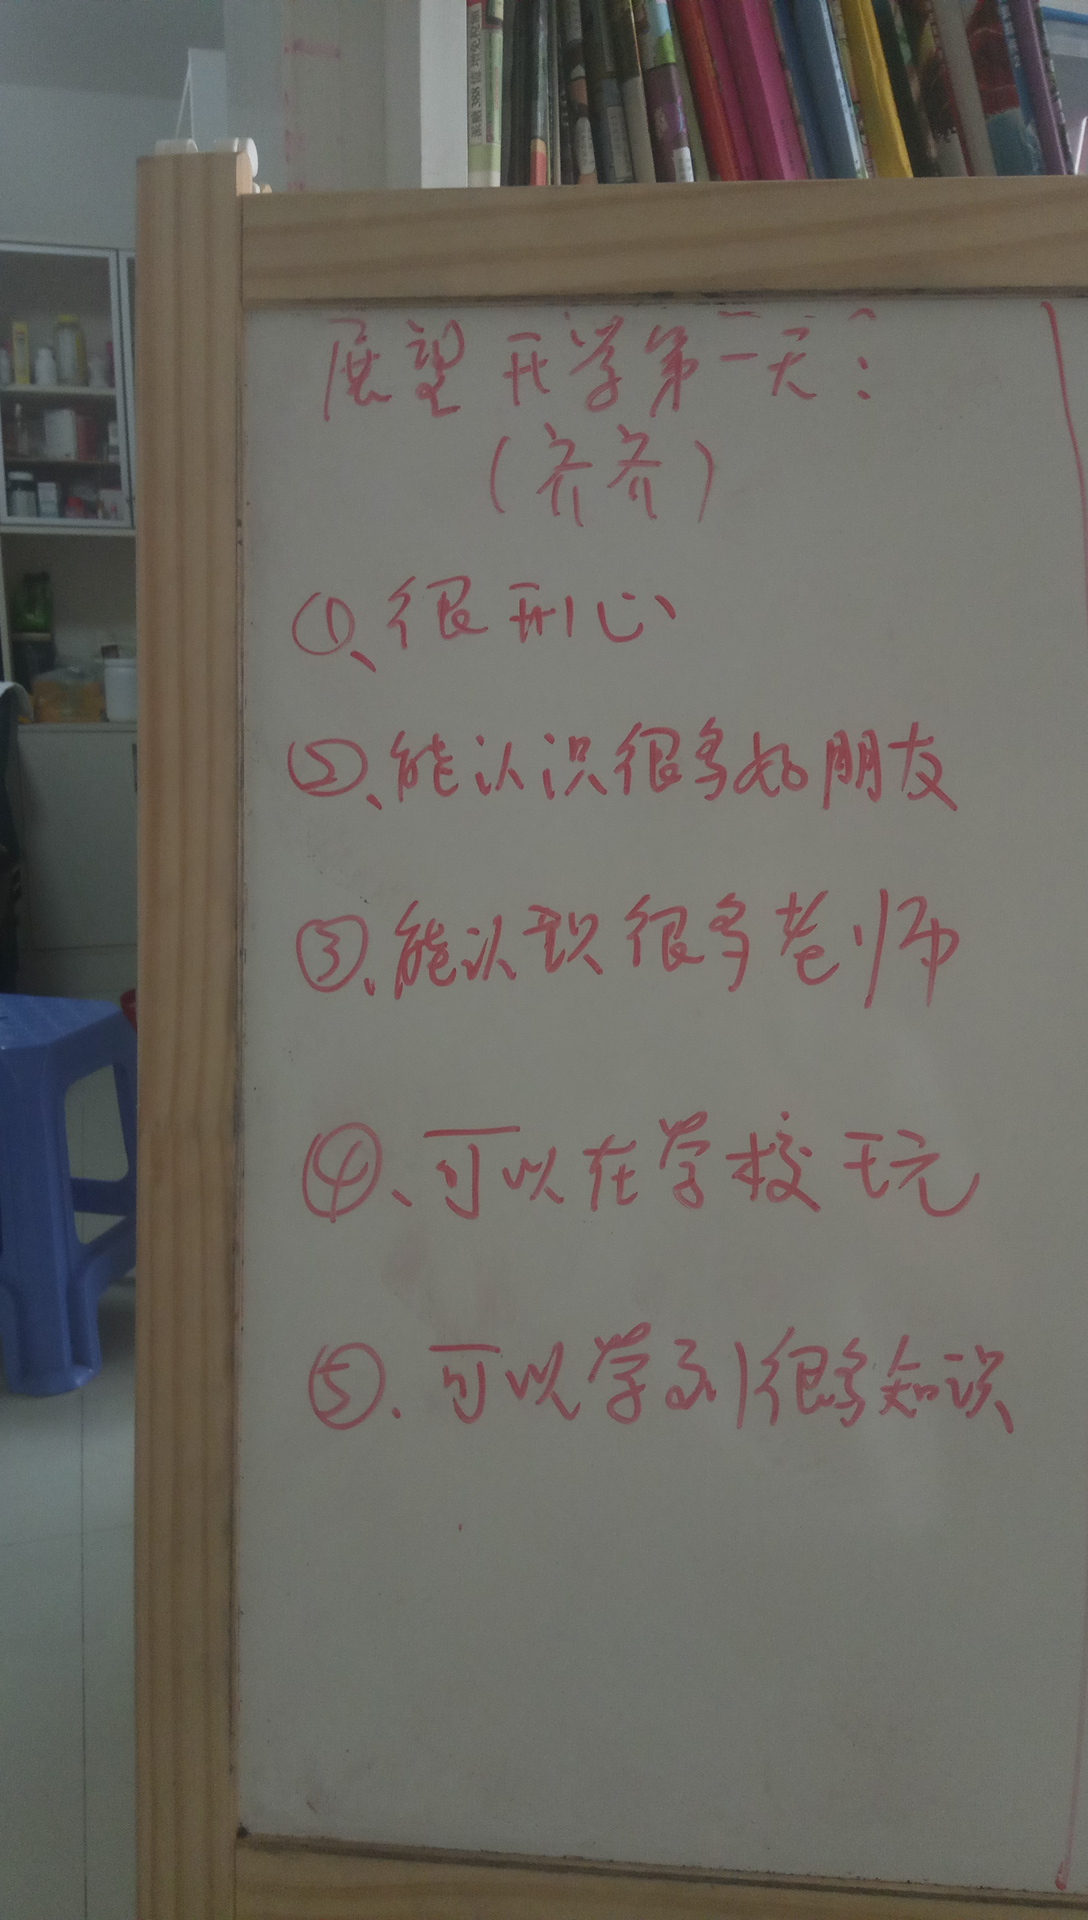 展望开学第一天：
（齐齐）
①、很开心
②、能认识很多好朋友
③、能认识很多老师
④、可以在学校玩
⑤、可以学到很多知识